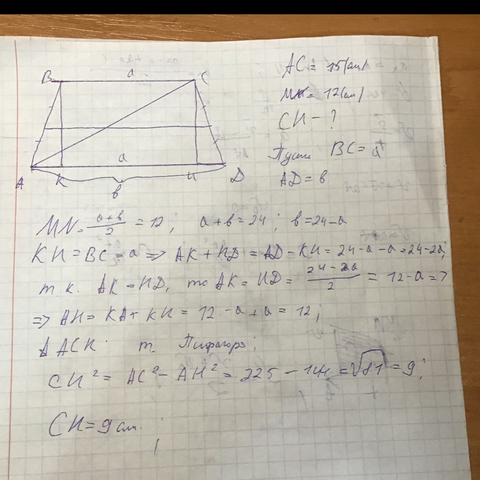 B a C
AC = 15(см)
MN = 12(см)
CH - ?
Пусть BC = a
AD = b
A K a H D
b
MN = \frac{a+b}{2} = 12, a+b=24; b=24-a
KH=BC=a => AK+HD=AD-KH=24-a-a=24-2a;
т.к. AK=HD, то AK=HD=\frac{24-2a}{2}=12-a=>
=> AH=KA+KH=12-a+a=12;
ΔACH т. Пифагора:
CH²=AC²-AH²=225-144=√81=9;
CH=9см.